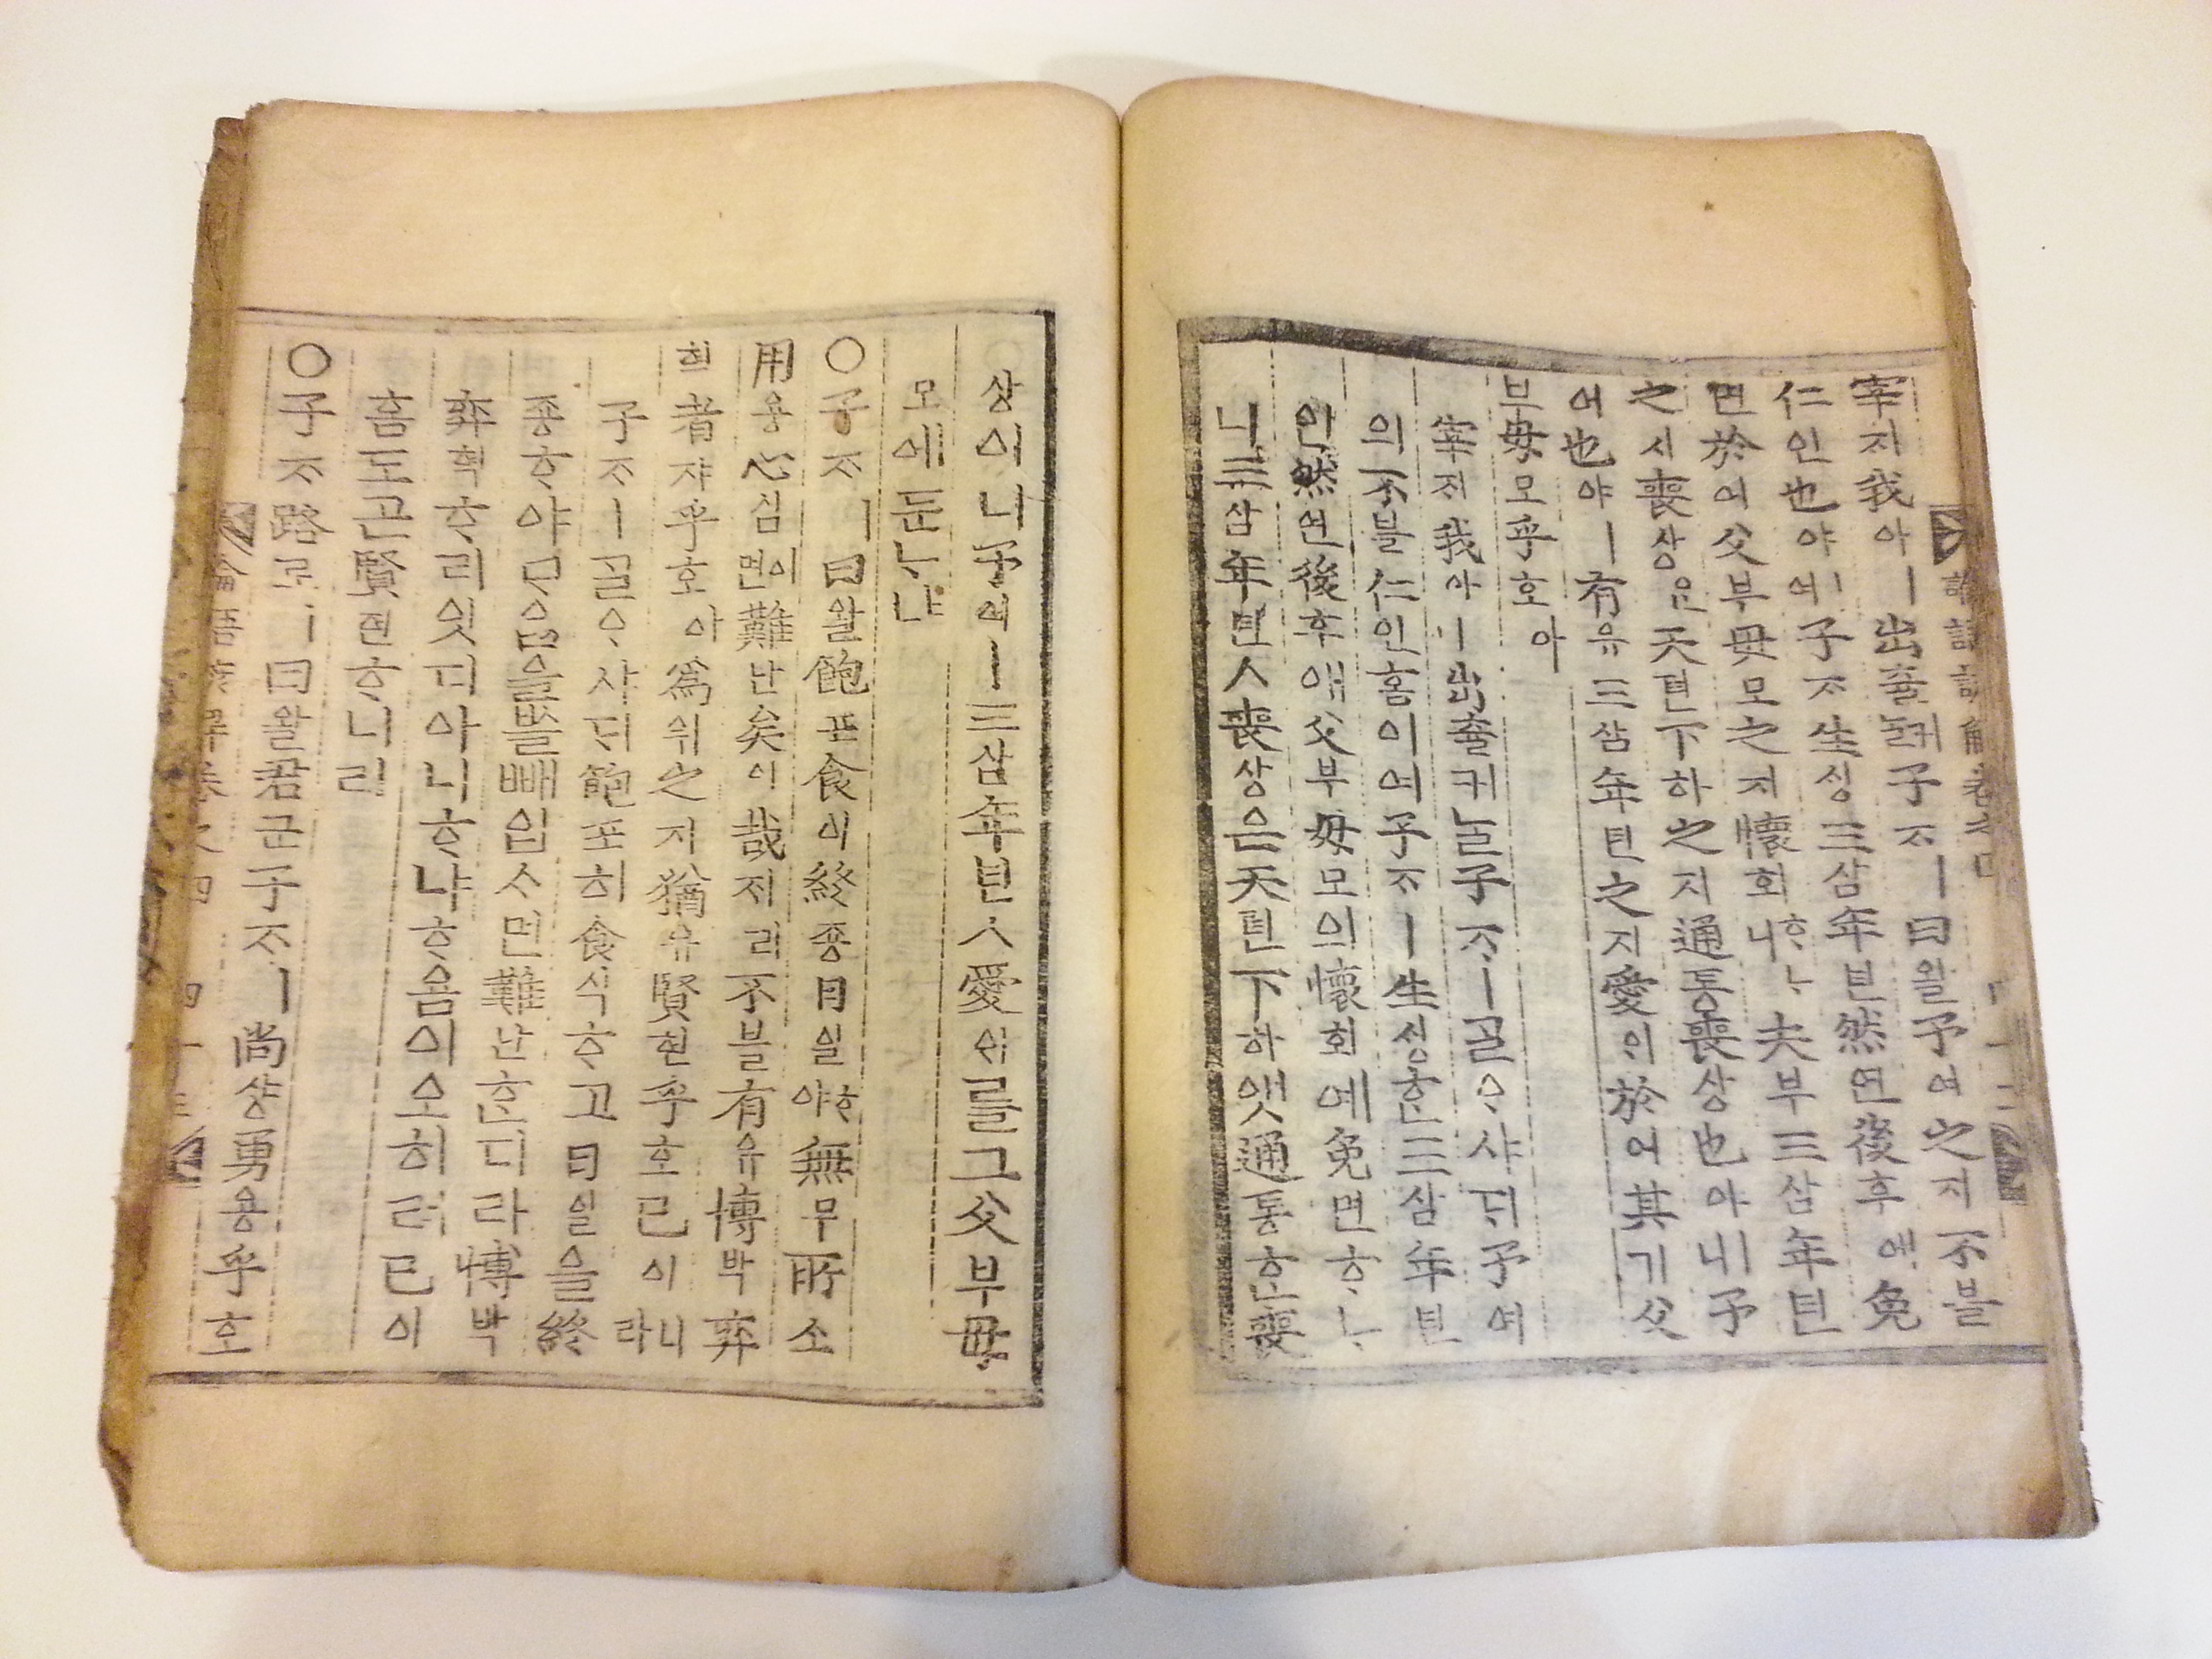 論語諺解卷之四
宰ᄌᆡ我아ㅣ出츌커ᄂᆞᆯ子ᄌᆞㅣ曰왈予여之지不블
仁인也야ㅣ여子ᄌᆞ生ᄉᆡᆼ三삼年년然연後후에免
면於어父부母모之지懷회ᄒᆞᄂᆞ니夫부三삼年년
之지喪상은天텬下하之지通통喪상也야ㅣ니予
여也야ㅣ有유三삼年년之지愛ᄋᆡ於어其기父
부母모乎호아
宰ᄌᆡ我아ㅣ出츌커ᄂᆞᆯ子ᄌᆞㅣᄀᆞᆯᄋᆞ샤ᄃᆡ予여
의不블仁인홈이여子ᄌᆞㅣ生ᄉᆡᆼᄒᆞᆫ三삼年년
인然연後후애父부母모의懷회예免면ᄒᆞᄂᆞ
니三삼年년ㅅ喪상은天텬下하앳通통ᄒᆞᆫ喪
상이니予여ㅣ三삼年년ㅅ愛ᄋᆡ를그父부母
모에둔ᄂᆞ냐
○子ᄌᆞㅣ曰왈飽포食식終죵日일ᄒᆞ야無무所소
用용心심이면難난矣의哉ᄌᆡ라不블有유博박弈
혁者쟈乎호아爲위之지猶유賢현乎호已이니라
子ᄌᆞㅣᄀᆞᆯᄋᆞ샤ᄃᆡ飽포히食식ᄒᆞ고日일을終
죵ᄒᆞ야ᄆᆞᄋᆞᆷ을ᄡᅳᆯ빼업스면難난ᄒᆞᆫ디라博박
弈혁ᄒᆞ리잇디아니ᄒᆞ냐ᄒᆞ욤이오히려已이
홈도곤賢현ᄒᆞ니라
○子ᄌᆞ路로ㅣ曰왈君군子ᄌᆞㅣ尚샹勇용乎호
論語諺解卷之四